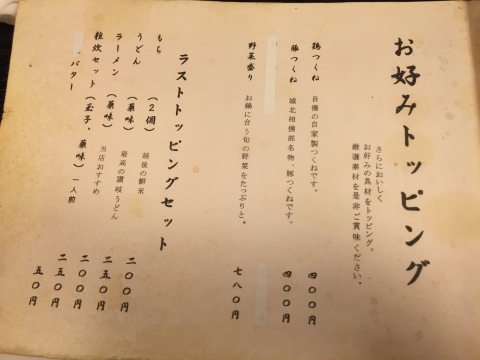 お好みトッピング
さらにおいしく
お好みの具材をトッピング。
厳選素材を是非ご賞味ください。
鶏つくね 自慢の自家製つくねです。 四〇〇円
豚つくね 城北相撲部名物、豚つくねです。 四〇〇円
野菜盛り お鍋に合う旬の野菜をたっぷりと。 七八〇円
ラストトッピングセット
もち (2個) 越後の餅米 二〇〇円
うどん (薬味) 最高の讃岐うどん 二五〇円
ラーメン (薬味) 二〇〇円
雑炊セット (玉子、薬味) 当店おすすめ 一人前 二五〇円
バター 五〇円